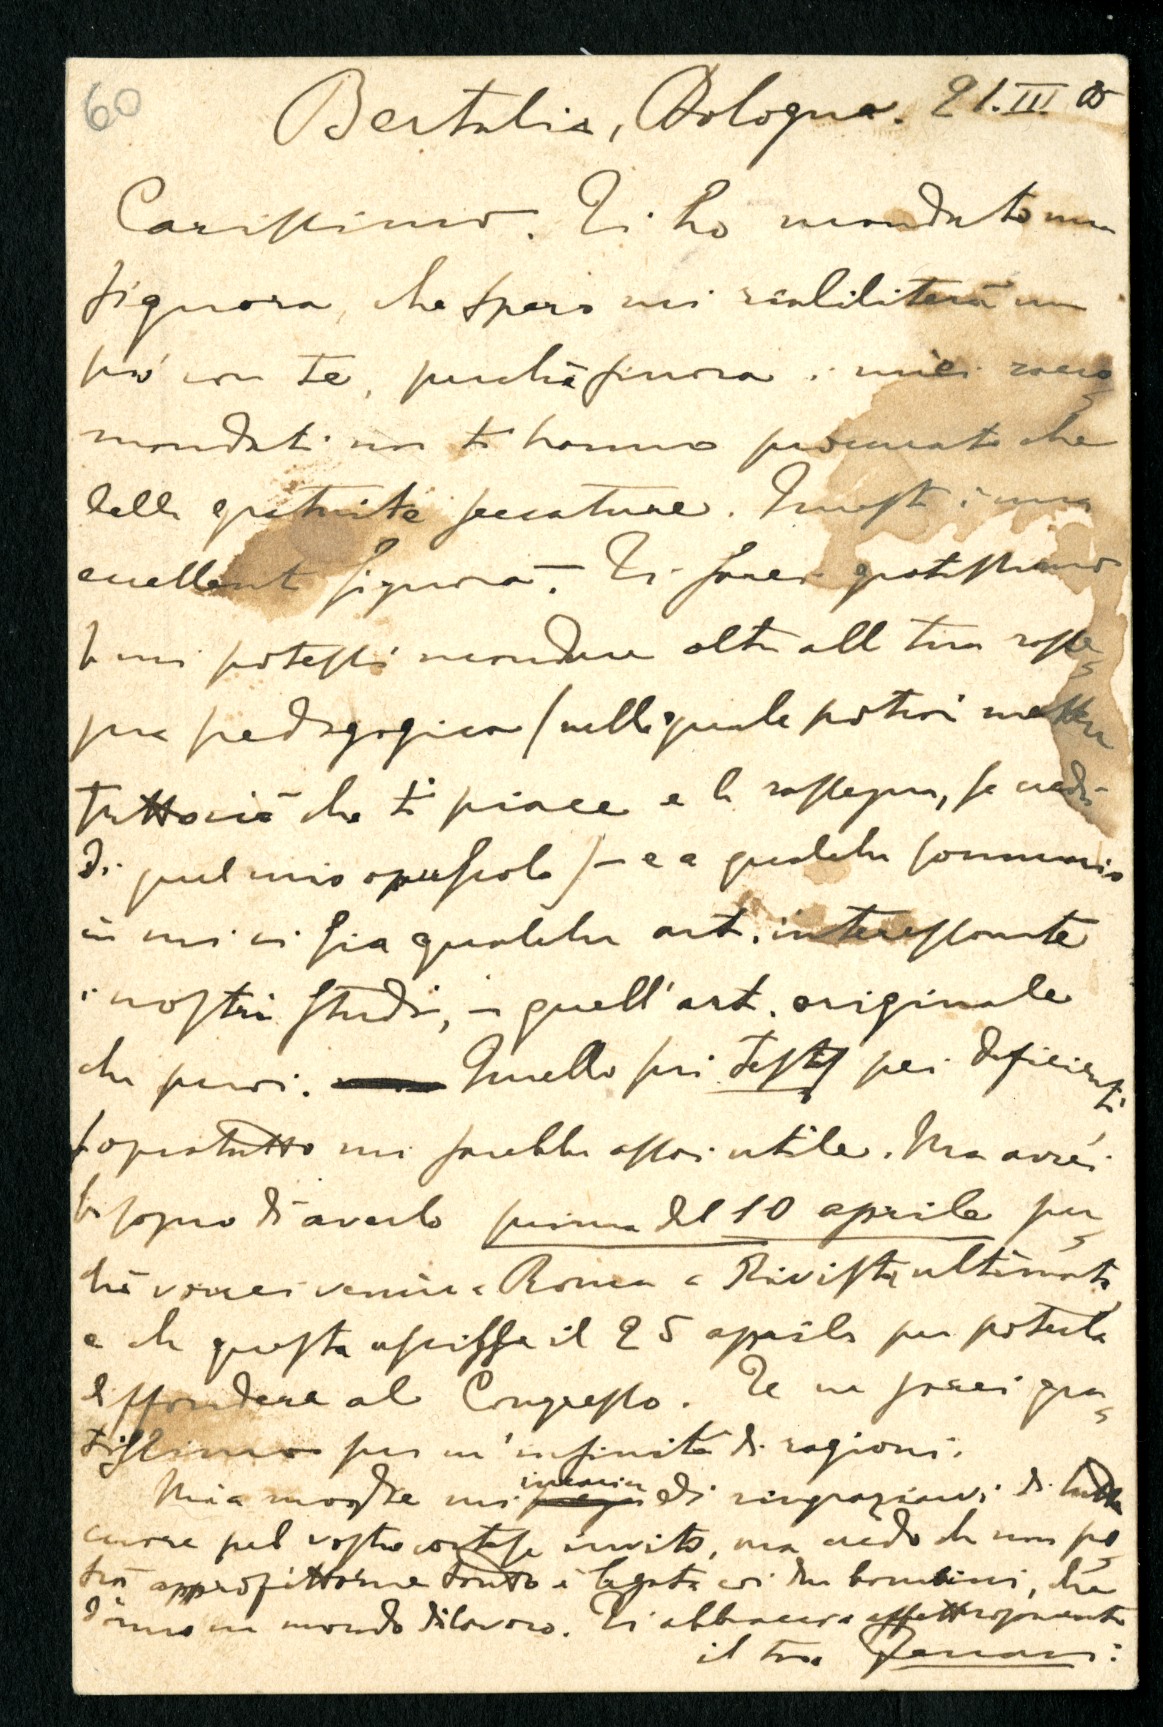 60
Bertalia, Bologna. 21.III.05
Carissimo. Ti ho mandato una
signora, che spero mi riabiliterà un
po' con te, perchè finora i miei racco=
mandati non ti hanno procurato che
delle gratuite seccature. Questa è una
eccellente signora. Ti sarei gratissimo
se mi potessi mandare oltre alla tua rasse=
gna pedagogica (nella quale potrai mettere
tuttociò che ti piace e la rassegna, se credi
di quel mio opuscolo) – e a qualche sommario
in cui ci sia qualche art. interessante
i nostri studi, – quell'art. originale
che puoi. Quello sui tests pei deficienti
sopratutto mi sarebbe assai utile. Ma avrei
bisogno di averlo prima del 10 aprile per=
chè vorrei venire a Roma a Rivista ultimata
e che questa uscisse il 25 aprile per poterla
diffondere al Congresso. Te ne sarei gra=
tissimo per un'infinità di ragioni.
Mia moglie mi incarica di ringraziarvi di tutto
cuore pel vostro cortese invito, ma credo che non po=
trà approfittarne tanto è legata coi due bambini, che
danno un mondo di lavoro. Ti abbraccia affettuosamente
il tuo Ferrari: